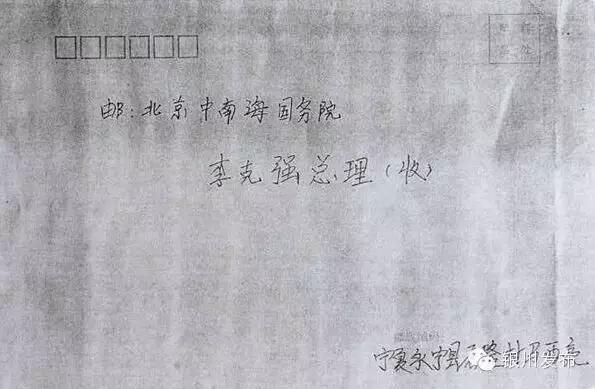 邮:北京中南海国务院
李克强总理(收)
宁夏永宁县
银川发布